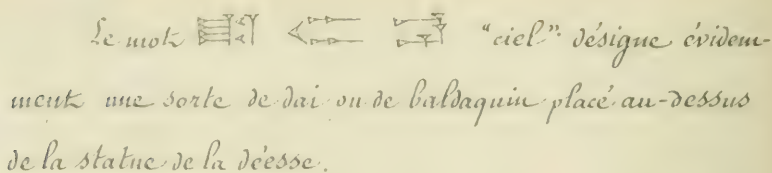 Le mot "ciel" désigne évidem-
ment une sorte de dai ou de baldaquin placé au-dessus
de la statue de la déesse.